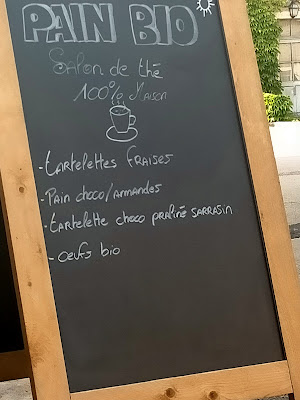 PAIN BIO
Salon de thé
100% Maison
- tartelettes fraises
- Pain choco/amandes
- tartelette choco praliné sarrasin
- oeufs bio